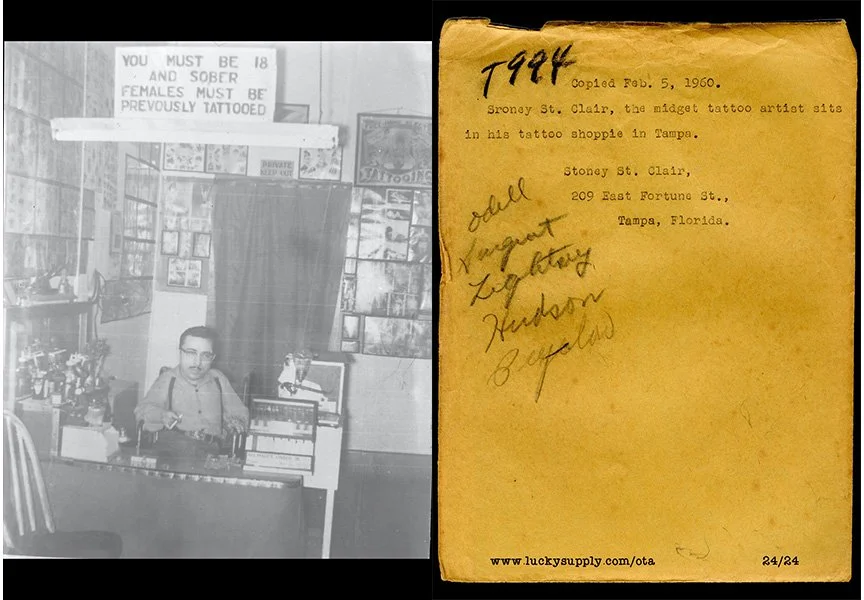 YOU MUST BE 18
AND SOBER
FEMALES MUST BE
PREVOUSLY TATTOOED
PRIVATE
KEEP OUT
TATTOOING
T994
Copied Feb. 5, 1960.
Sroney St. Clair, the midget tattoo artist sits
in his tattoo shoppie in Tampa.
Stoney St. Clair,
209 East Fortune St.,
Tampa, Florida.
Odell
Surgeat
Leghtsey
Hudson
Bigelow
www.luckysupply.com/ota
24/24